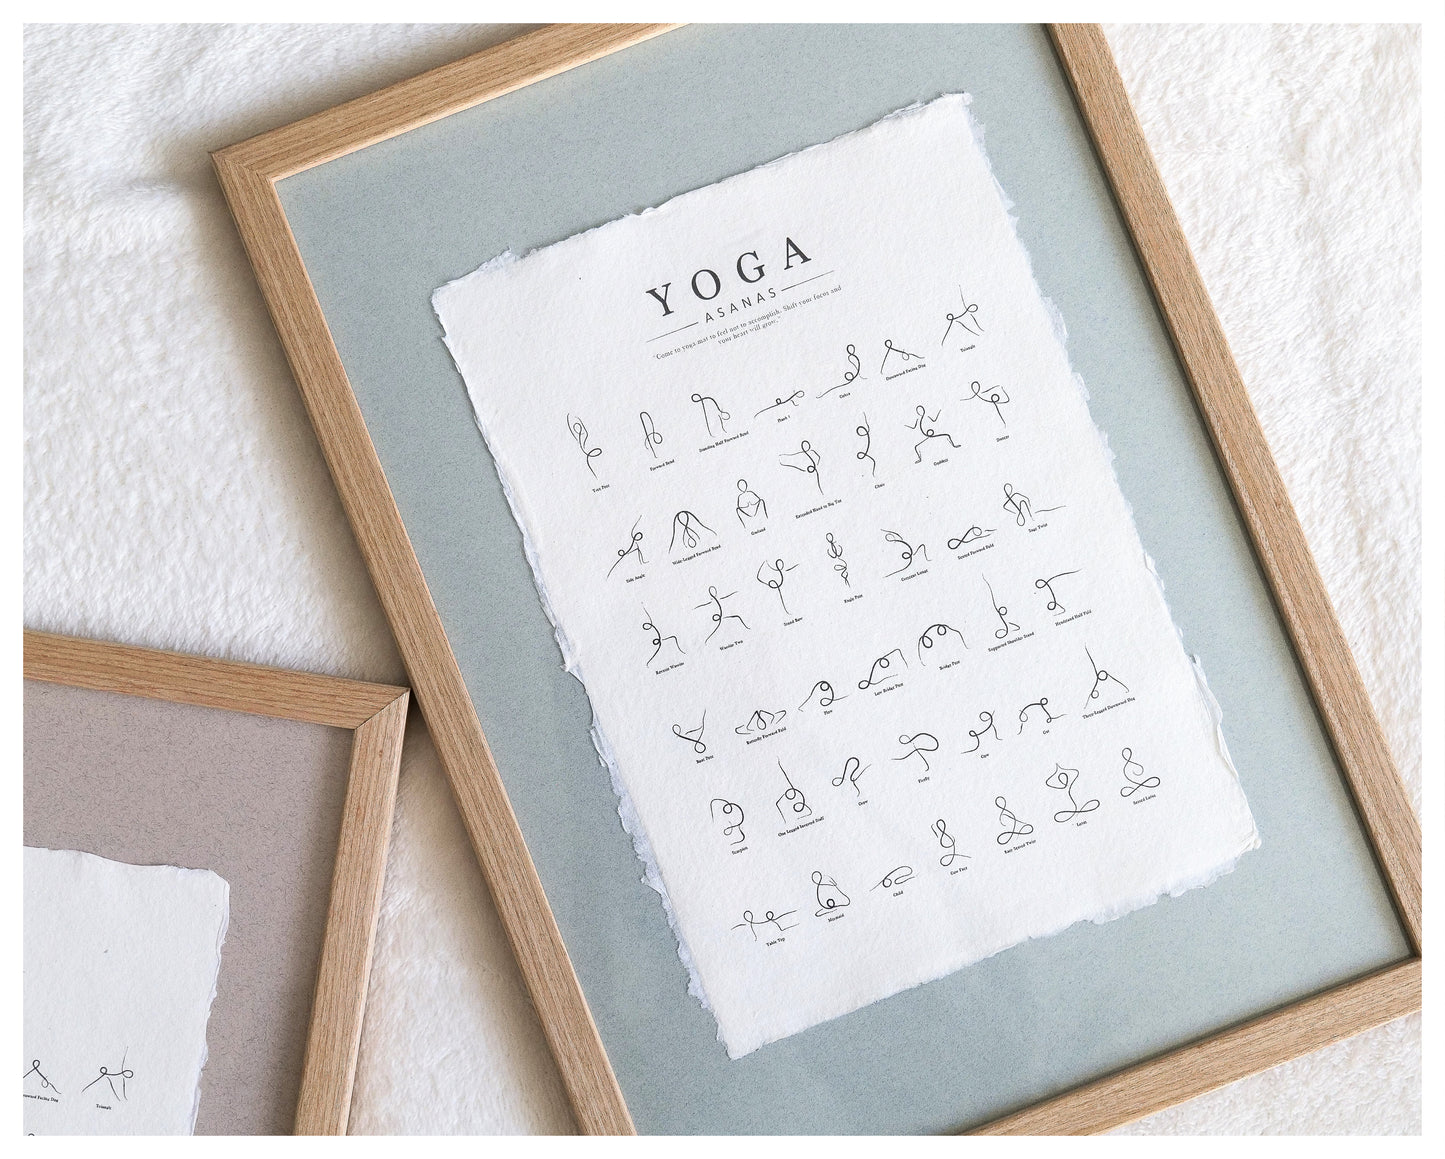 YOGA
ASANAS
"Come to yoga mat to feel not to accomplish. Shift your focus and
your heart will grow."
Tree Pose
Forward Bend
Standing Half Forward Bend
Plank 1
Cobra
Downward Facing Dog
Triangle
Side Angle
Wide Legged Forward Bend
Garland
Extended Hand to Big Toe
Chair
Goddess
Dancer
Reverse Warrior
Warrior Two
Stand Bow
Eagle Pose
Crescent Lunge
Seated Forward Fold
Sage Twist
Boat Pose
Butterfly Forward Fold
Plow
Low Bridge Pose
Bridge Pose
Supported Shoulder Stand
Headstand Half Fold
Scorpion
One Legged Inverted Staff
Crow
Firefly
Cow
Cat
Three Legged Downward Dog
Table Top
Mermaid
Child
Cow Face
Easy Seated Twist
Lotus
Seated Lotus
Facing Dog
Triangle